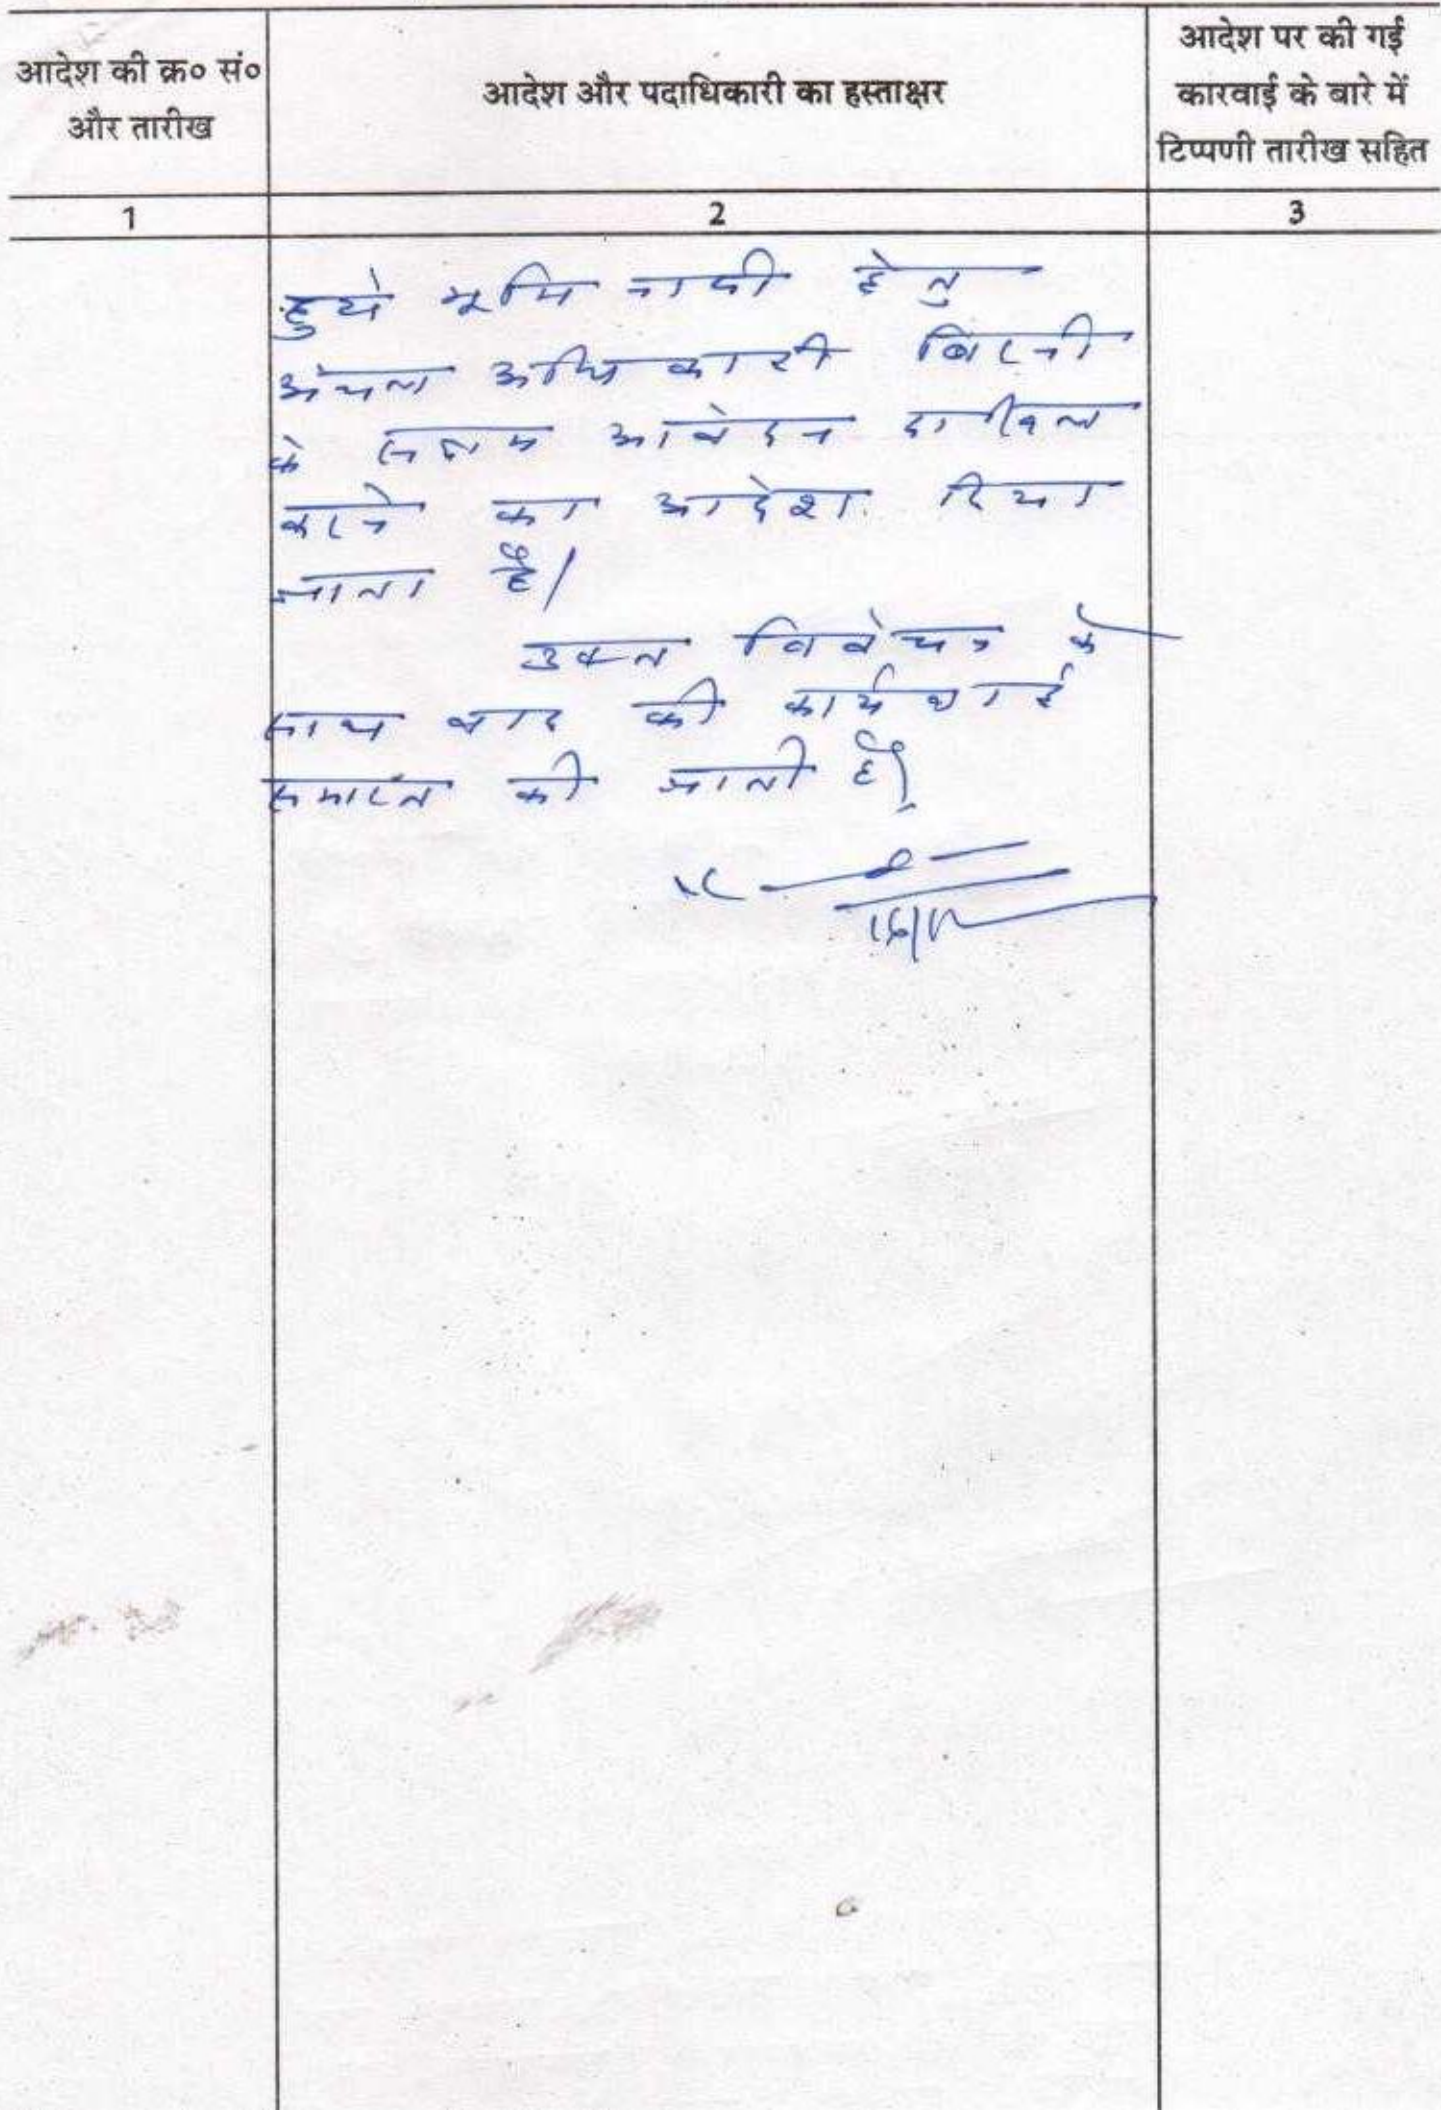 आदेश की क्र० सं०
और तारीख
आदेश और पदाधिकारी का हस्ताक्षर
आदेश पर की गई
कारवाई के बारे में
टिप्पणी तारीख सहित
1 2 3
हुये भूमि नापी हेतु
अंचल अधिकारी बिरनी
के समक्ष आवेदन दाखिल
करने का आदेश दिया
जाता है।
उक्त विवेचन के
साथ वाद की कार्यवाई
समाप्त की जाती है।